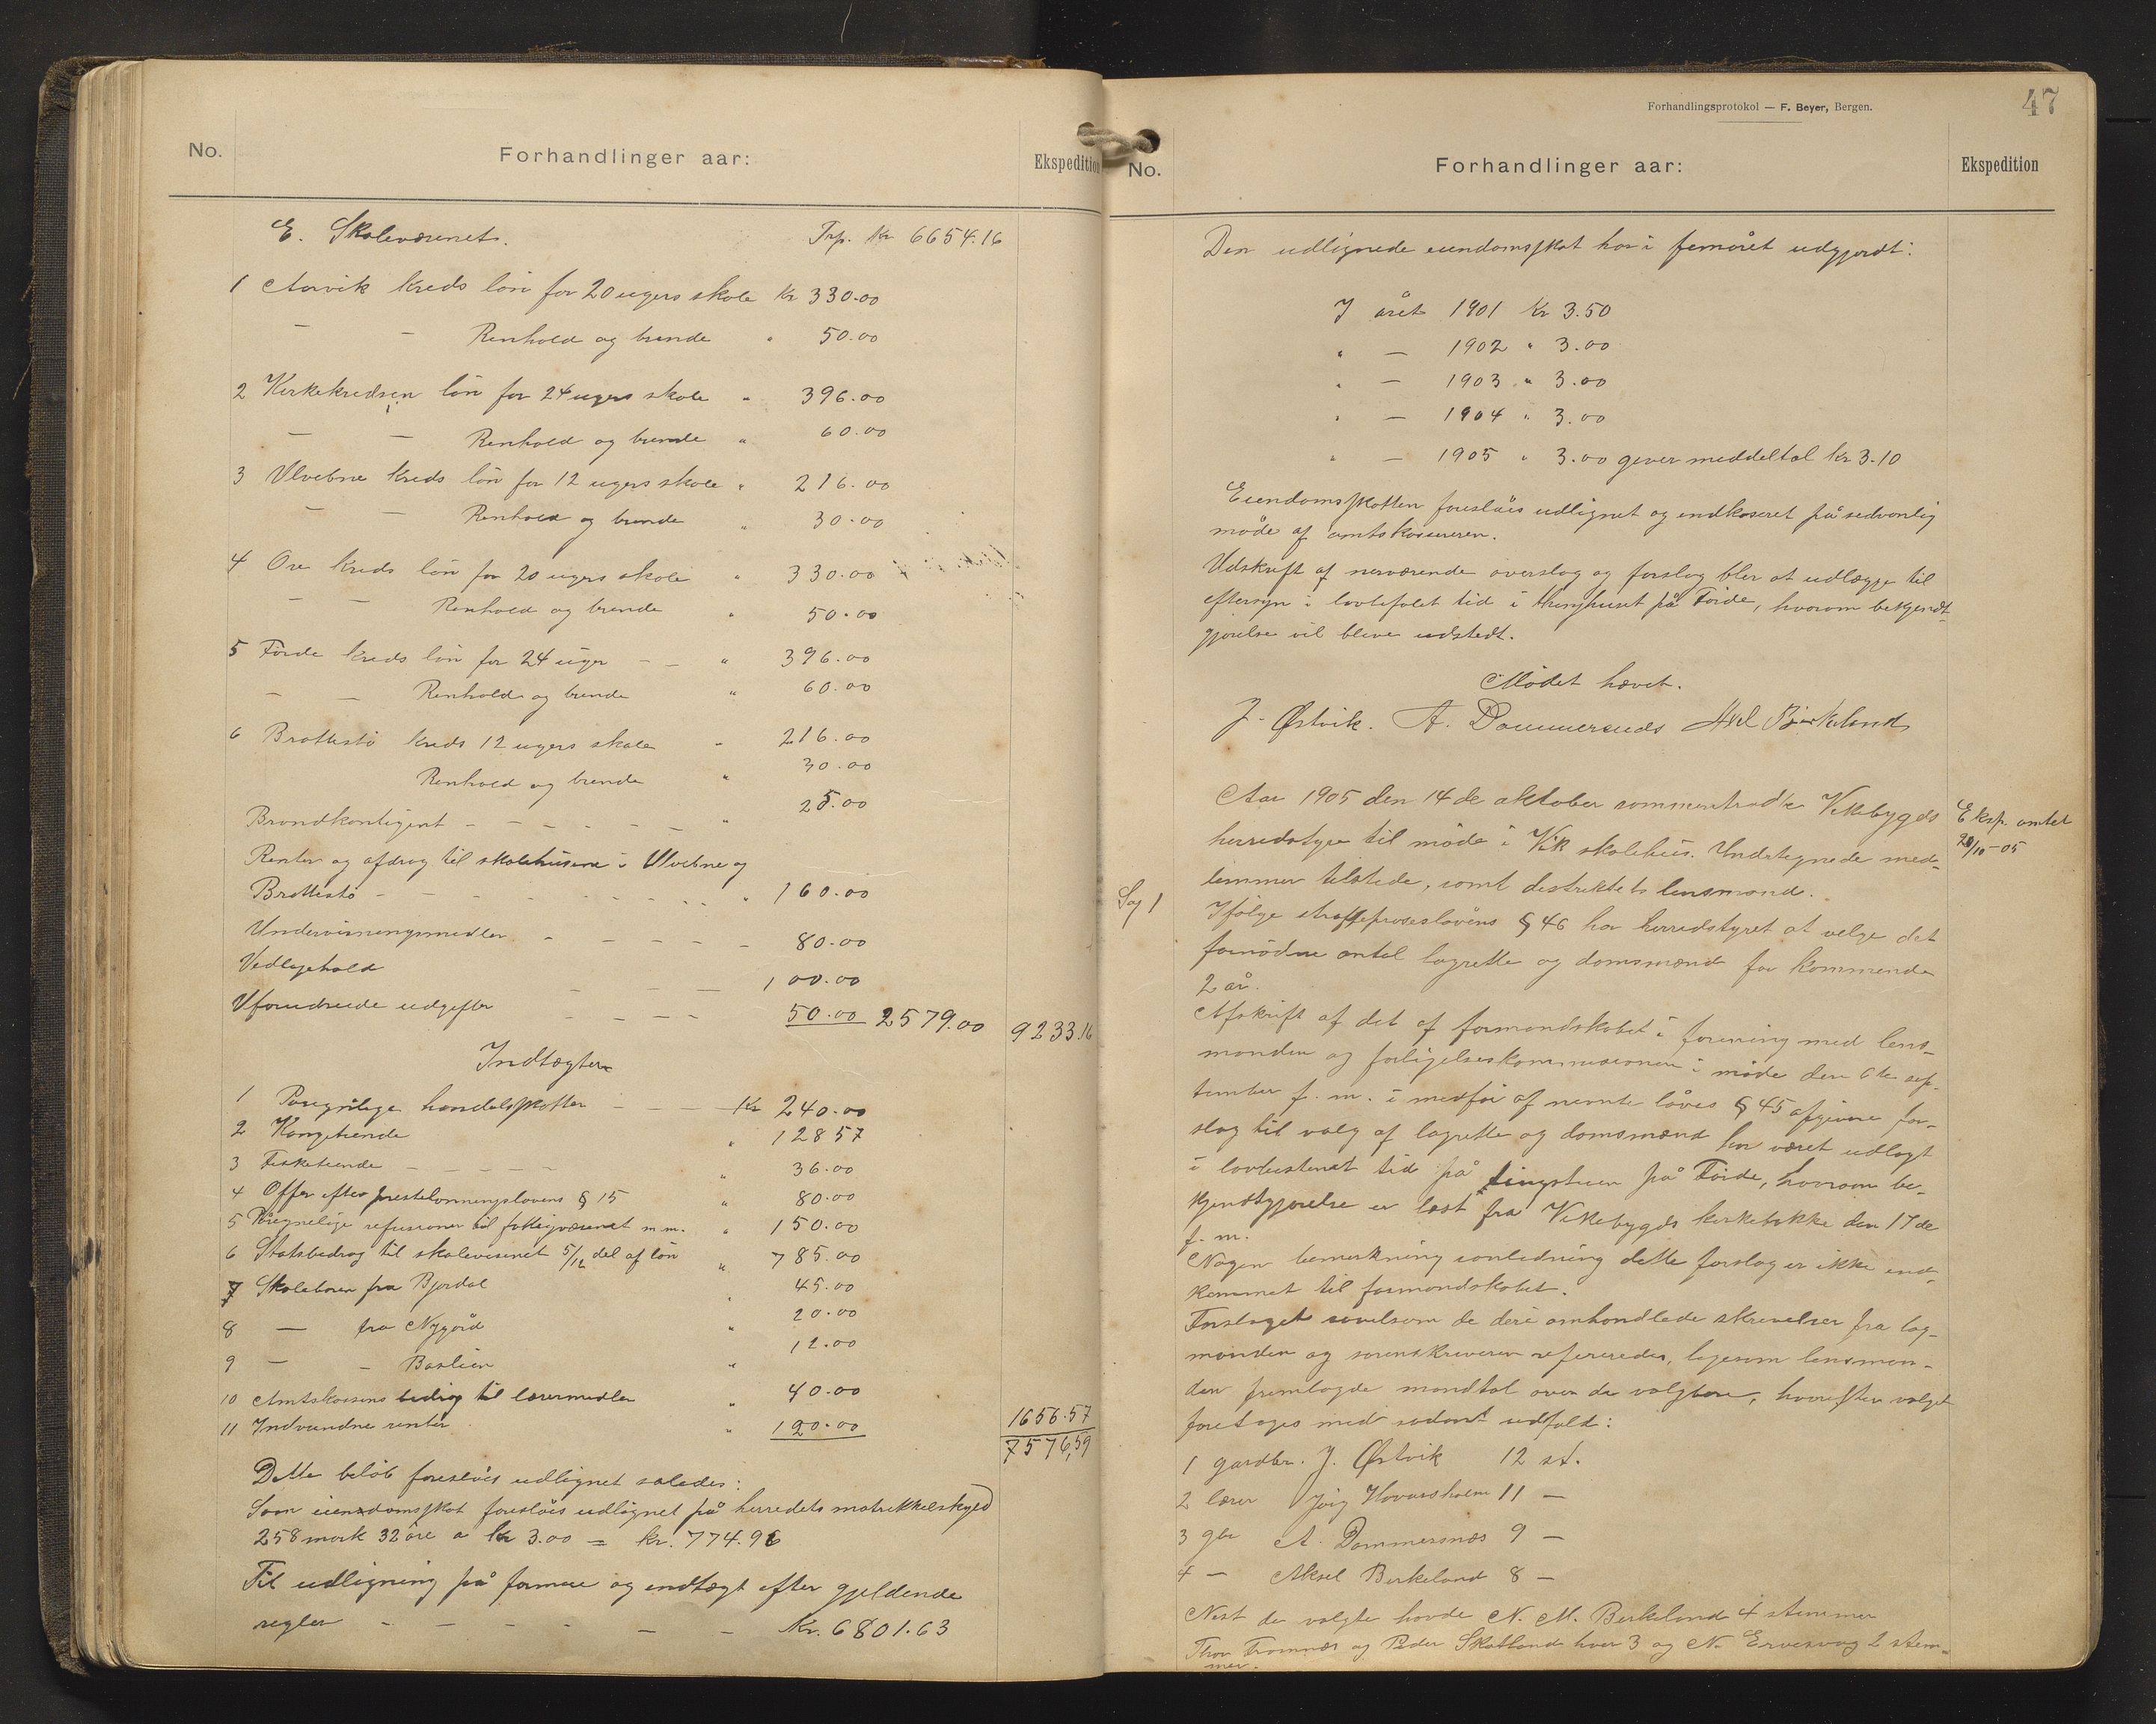 No.
Forhandlinger aar:
Ekspedition
E. Skolevæsenet.
Trp. Kr 6654.16
1 Aarvik kreds løn for 20 ugers skole Kr 330.00
— — Renhold og brende " 50.00
2 Kirkekredsen løn for 24 ugers skole " 396.00
— — Renhold og brende " 60.00
3 Ulvebne kreds løn for 12 ugers skole " 216.00
— — Renhold og brende " 30.00
4 Ore kreds løn for 20 ugers skole " 330.00
— — Renhold og brende " 50.00
5 Førde kreds løn for 24 uger — — " 396.00
— — Renhold og brende " 60.00
6 Brattestø kreds 12 ugers skole " 216.00
Renhold og brende " 30.00
Brandkontigent — — — — — " 25.00
Renter og afdrag til skolehusene i Ulvebne og
Brattestø — — — — — " 160.00
Undervisningsmidler — — — — — 80.00
Vedligehold — — — 100.00
Uforudseede udgifter — — — — 50.00 2579.00 9233.16
Indtægter
1 Paaregnlige handelsskatter — — — Kr 240.00
2 Kongetiende " 128 57
3 Fisketiende — — — — — " 36.00
4 Offer efter prestelønningslovens § 15 " 80.00
5 Påregnelige refusioner til fattigvæsenet m.m. " 150.00
6 Statsbidrag til skolevæsenet 5/12 del af løn " 785.00
7 Skoleboren fra Bjordal " 45.00
8 — fra Nygård " 20.00
9 — — Baslien " 12.00
10 Amtskassens bidrag til læremidler " 40.00
11 Indvundne renter " 120.00
1656.57
7576,59
Dette beløb foreslåes udlignet således:
Som eiendomsskat foreslåes udlignet på herredets matrikkelskyld
258 mark 32 øre a kr 3.00 = kr. 774.96
Til udligning på formue og indtægt efter gjeldende
regler — — — — — — Kr. 6801.63
Forhandlingsprotokol — F. Beyer, Bergen.
47
No.
Forhandlinger aar:
Ekspedition
Den udlignede eiendomsskat har i femåret udgjordt:
I året 1901 Kr 3.50
" — 1902 " 3.00
" — 1903 " 3.00
" — 1904 " 3.00
" — 1905 " 3.00 giver meddeltal kr 3.10
Eiendomsskatten foreslåes udlignet og indkaseret på sedvanlig
måde af amtskassereren.
Udskrift af nerværende overslag og forslag bler at udlægge til
eftersyn i lovbefalet tid i thinghuset på Førde, hvorom bekjendt-
gjørelse vil blive udstedt.
Mødet hævet.
J. Østvik. A. Dommersnes Aksel Birkeland
Aar 1905 den 14de oktober sammentrådte Vikebygds
herredstyre til møde i Vik skolehus. Undertegnede med-
lemmer tilstede, samt distriktets lensmand.
Eksp. amtet
28/10-05
Sag 1
Ifølge straffeproseslovens § 46 har herredstyret at velge det
fornødne antal lagrette og domsmænd for kommende
2 år.
Afskrift af det af formandskabet i forening med lens-
manden og forligelseskommissionen i møde den 6te sep-
tember f. m. i medfør af nemte lovs § 45 afgivne for-
slag til valg af lagrette og domsmænd har været udlagt
i lovbestemt tid på tingstuen på Førde, hvorom be-
kjendtgjørelse er læst fra Vikebygds kirkebakke den 17de
f. m.
Nogen bemerkning ianledning dette forslag er ikke ind-
kommet til formandskabet.
Forslaget såvelsom de deri omhandlede skrivelser fra lag-
manden og sorenskriveren refereredes, ligesom lensman-
den fremlagde mandtal over de valgbare, hvorefter valget
foretages med sådant udfald:
1 gardbr. J. Østvik 12 st.
2 lærer Jørg Hovdesholm 11 —
3 gbr A. Dommersnæs 9 —
4 — Aksel Birkeland 8 —
Nest de valgte havde N. M. Birkeland 4 stemmer
Thor Tromnes og Peder Skotland hver 3 og N. Ervesvåg 2 stem-
mer.